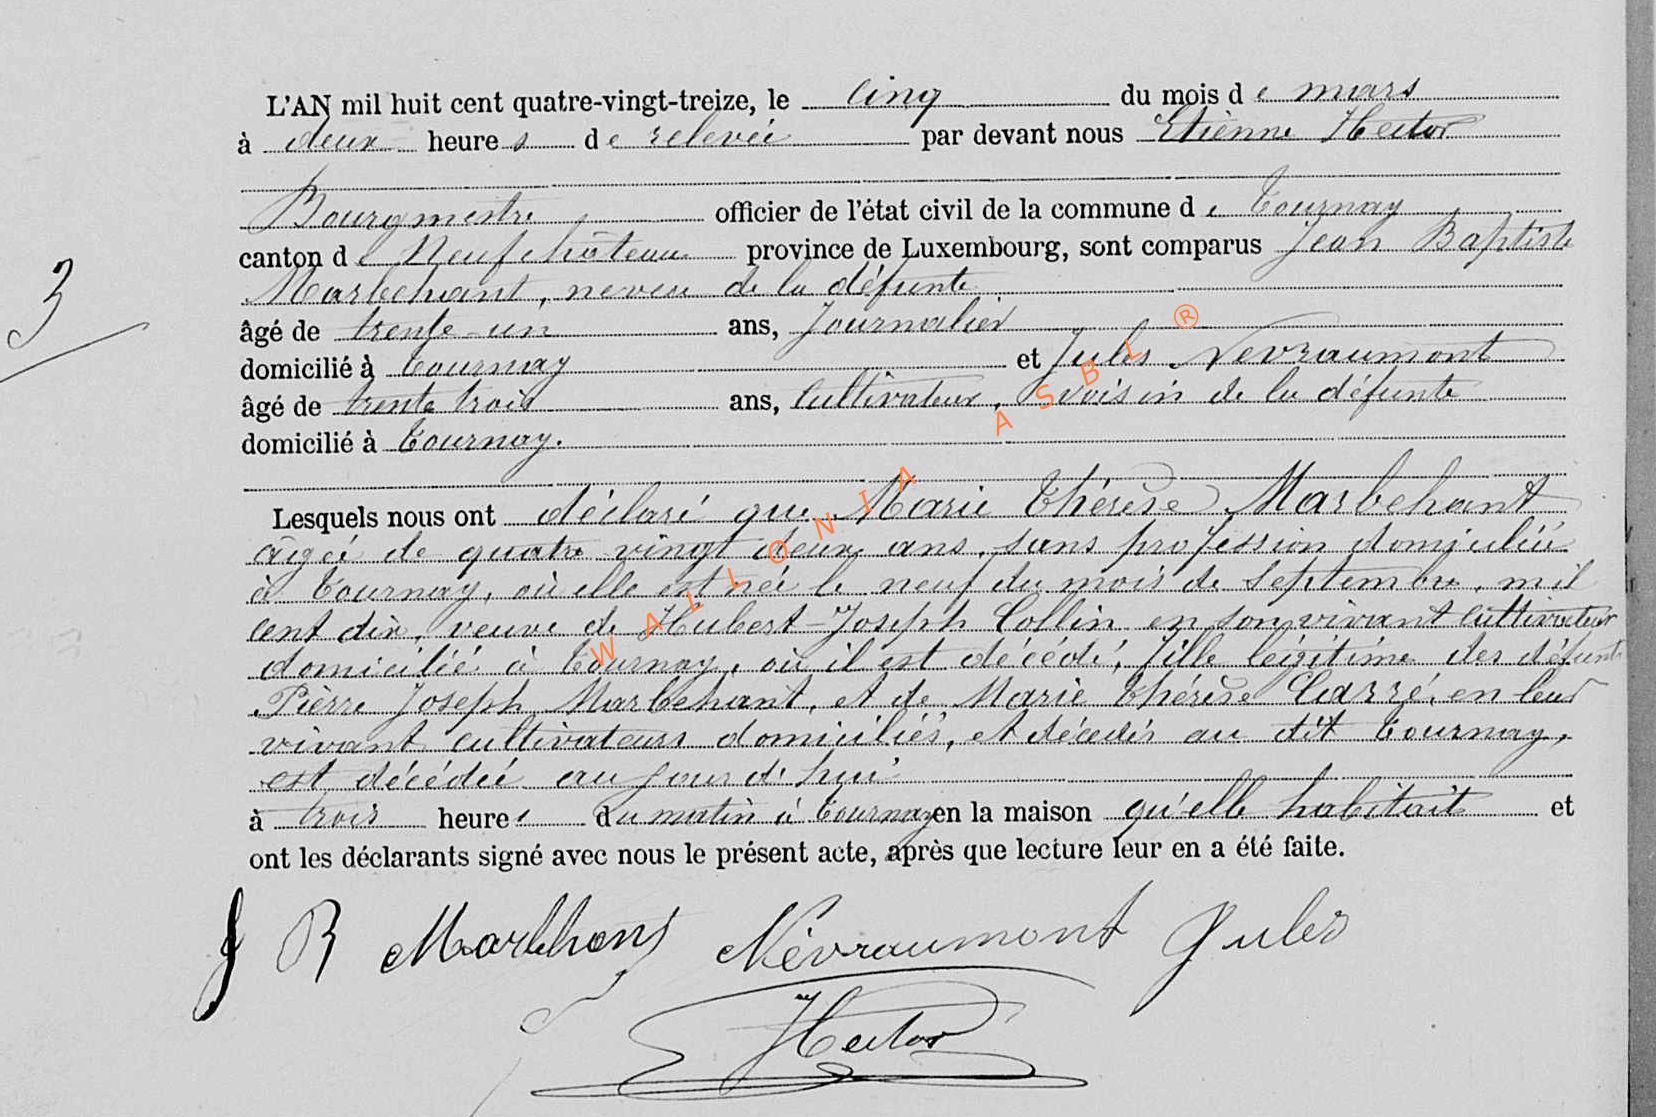 L'AN mil huit cent quatre-vingt-treize, le cinq du mois de mars
à deux heures de relevée par devant nous Etienne Hector
Bourgmestre officier de l'état civil de la commune de Tournay
canton de Neufchâteau province de Luxembourg, sont comparus Jean Baptiste
Marbehant, neveu de la défunte
âgé de trente-un ans, Journalier
domicilié à Tournay et Jules Nevraumont
âgé de trente trois ans, cultivateur, voisin de la défunte
domicilié à Tournay.
3
Lesquels nous ont déclaré que Marie Thérèse Marbehant
âgée de quatre vingt deux ans, sans profession domiciliée
à Tournay, où elle est née le neuf du mois de Septembre, mil
cent dix, veuve de Hubert-Joseph Collin en son vivant cultivateur
domicilié à Tournay, où il est décédé, fille légitime des défunts
Pierre Joseph Marbehant, et de Marie Thérèse Carré, en leur
vivant cultivateurs domiciliés, et décédés au dit Tournay,
est décédée aujourd'hui
à trois heures du matin à Tournay en la maison qu'elle habitait et
ont les déclarants signé avec nous le présent acte, après que lecture leur en a été faite.
J B Marbehant Névraumont Jules
Hector
WALLONIA ASBL ®